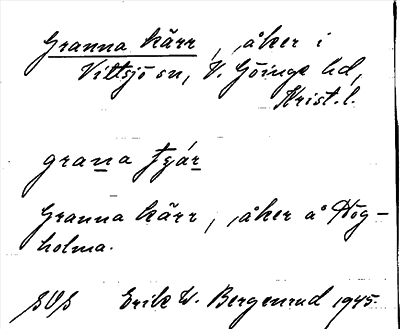 Granna kärr, åker i
Vittsjö sn, V. Göinge hd,
Krist. l.
Granna kärr, åker å Hög-
holma.
Erik W. Bergenrud 1945.